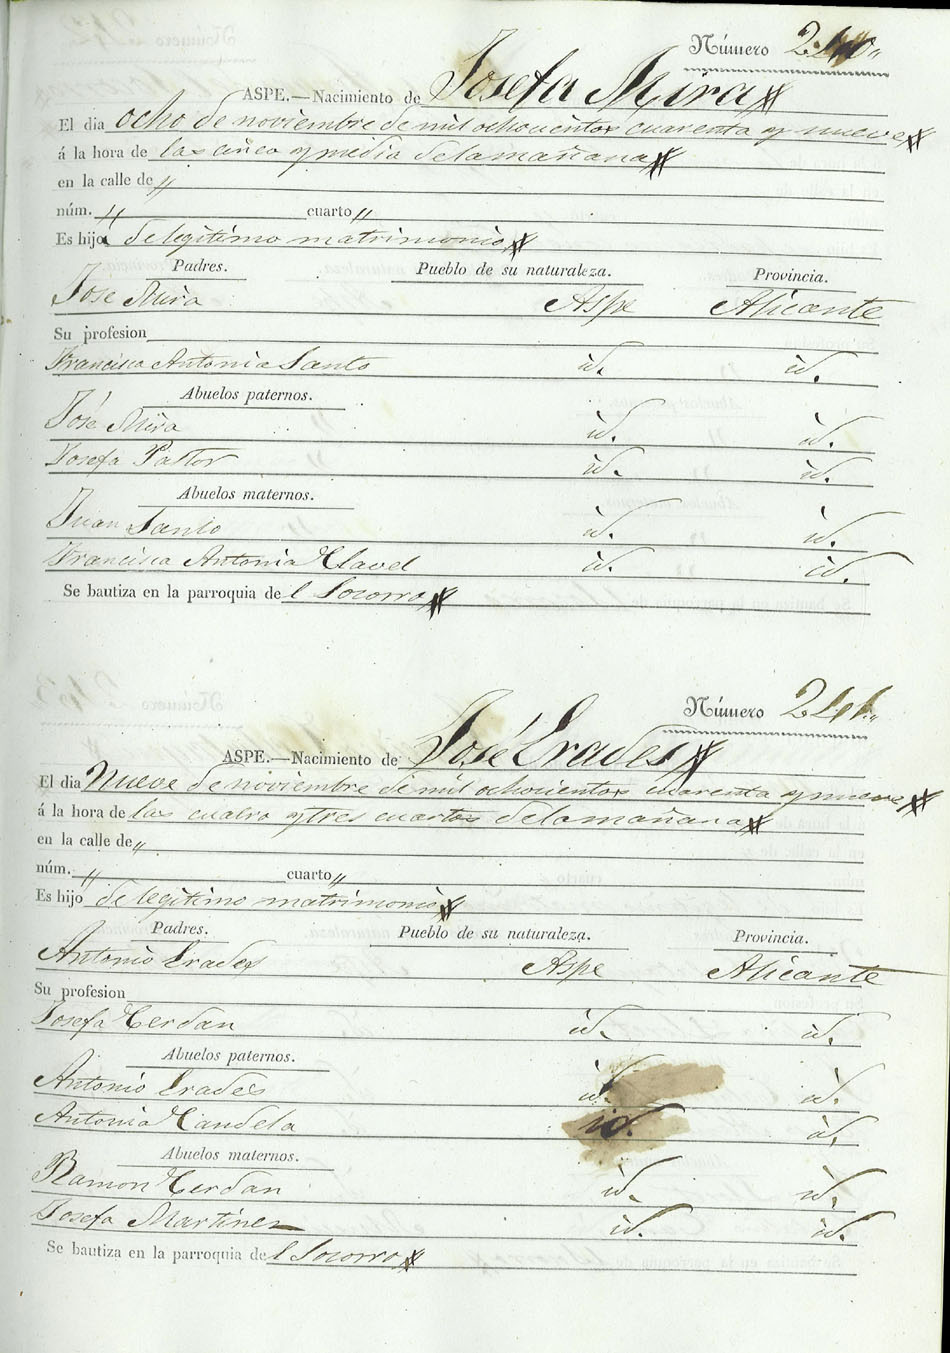 Número 240„
ASPE.—Nacimiento de Josefa Mira
El dia ocho de noviembre de mil ochocientos cuarenta y nueve
á la hora de las cinco y media de la mañana
en la calle de „
núm. „ cuarto „
Es hija de legitimo matrimonio
Padres. Pueblo de su naturaleza. Provincia.
Jose Mira Aspe Alicante
Su profesion
Francisca Antonia Santo id. id.
Abuelos paternos.
José Mira id. id.
Josefa Pastor id. id.
Abuelos maternos.
Juan Santo id. id.
Francisca Antonia Clavel id. id.
Se bautiza en la parroquia del Socorro
Número 241„
ASPE.—Nacimiento de José Erades
El dia Nueve de noviembre de mil ochocientos cuarenta y nueve
á la hora de las cuatro y tres cuartos de la mañana
en la calle de „
núm. „ cuarto „
Es hijo de legitimo matrimonio
Padres. Pueblo de su naturaleza. Provincia.
Antonio Erades Aspe Alicante
Su profesion
Josefa Cerdan id. id.
Abuelos paternos.
Antonio Erades id. id.
Antonia Candela id. id.
Abuelos maternos.
Ramon Cerdan id. id.
Josefa Martinez id. id.
Se bautiza en la parroquia del Socorro